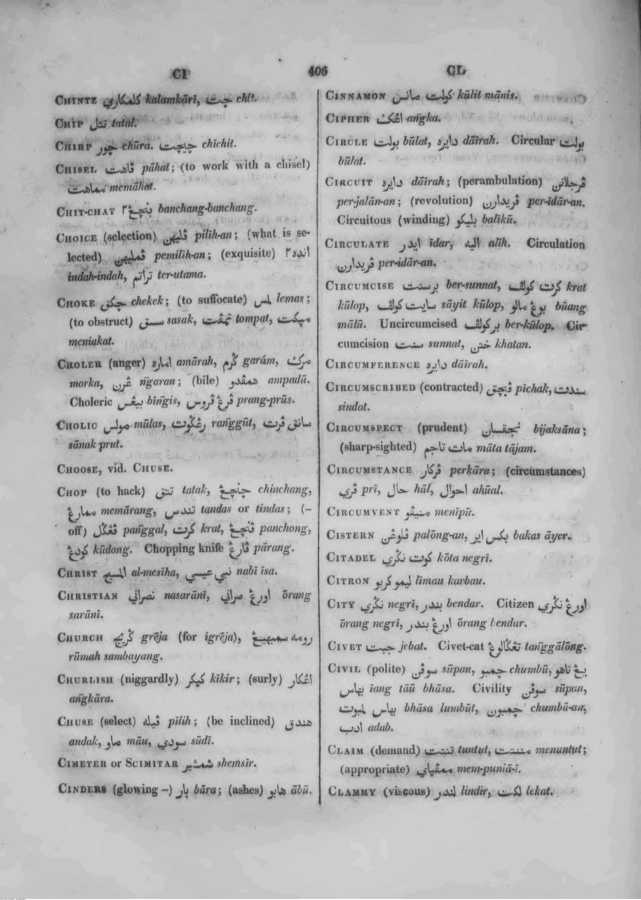 CI
406
CL
CHINTZ کلمکاري kalamkāri, چيت chīt.
CHIP تتل tatal.
CHIRP چور chūra. چيچيت chichit.
CHISEL فاهت pāhat; (to work with a chisel)
مماهت memāhat.
CHIT-CHAT بنچڠ٢ banchang-banchang.
CHOICE (selection) فليهن pilih-an; (what is se-
lected) فمليهن pemilih-an; (exquisite) اينده٢
indah-indah, تراتم ter-utama.
CHOKE چکق chekek; (to suffocate) لمس lemas;
(to obstruct) سسق sasak, تمفت tompat, مپکت
meniakat.
CHOLER (anger) اماره amārah, ڬرم garám, مرک
morka, ڠرن ngaran; (bile) همفدو ampadū.
Choleric بيڠس bīngis, فرڠ فروس prang-prūs.
CHOLIC مولس mūlas, رڠڬوت ranggūt, سانق فرت
sānak prut.
CHOOSE, vid. CHUSE.
CHOP (to hack) تتق tatak, چنچڠ chinchang,
ممارڠ memārang, تندس tandas or tindas; (–
off) فڠڬل panggal, کرت krat, فنچڠ panchong,
کودڠ kūdong. Chopping knife فارڠ pārang.
CHRIST المسيح al-mesīha, نبي عيسي nabī īsa.
CHRISTIAN نصراني nasarāni, اورڠ سراني ōrang
sarāni.
CHURCH ڬريج grēja (for igrēja), رومه سمبهيڠ
rūmah sambayang.
CHURLISH (niggardly) کيکر kikir; (surly) اڠکار
angkāra.
CHUSE (select) فيله pilih; (be inclined) هندق
andak, ماو māu, سودي sūdi.
CIMETER or SCIMITAR شمشير shemsir.
CINDERS (glowing –) بار bāra; (ashes) هابو ābū.
CINNAMON کولت مانس kūlit mānis.
CIPHER اڠک angka.
CIRCLE بولت būlat, دايره dāīrah. Circular بولت
būlat.
CIRCUIT دايره dāīrah; (perambulation) فرجلانن
per-jalān-an; (revolution) فريدارن per-īdār-an.
Circuitous (winding) بليکو balīkū.
CIRCULATE ايدر īdar, اليه alīh. Circulation
فريدارن per-īdār-an.
CIRCUMCISE برسنت ber-sunnat, کرت کولف krat
kūlop, سايت کولف sāyit kūlop, بوڠ مالو būang
mālū. Uncircumcised برکولف ber-kūlop. Cir-
cumcision سنت sunnat, ختن khatan.
CIRCUMFERENCE دايره dāīrah.
CIRCUMSCRIBED (contracted) فيچق pichak, سندت
sindat.
CIRCUMSPECT (prudent) بجقسان bijaksāna;
(sharp-sighted) مات تاجم māta tājam.
CIRCUMSTANCE فرکار perkāra; (circumstances)
فري prī, حال hāl, احوال ahūal.
CIRCUMVENT منيفو menīpū.
CISTERN فلوڠن palōng-an, بکس اير bakas āyer.
CITADEL کوت نڬري kōta negrī.
CITRON ليمو کربو līmau karbau.
CITY نڬري negrī, بندر bendar. Citizen اورڠ نڬري
ōrang negrī, اورڠ بندر ōrang bendar.
CIVET جبت jebat. Civet-cat تڠڬالڠ tanggālōng.
CIVIL (polite) سوفن sūpan, چمبو chumbū, يڠ تاهو
بهاس iang tāū bhāsa. Civility سوفن sūpan,
بهاس لمبوت bhāsa lumbūt, چمبون chumbū-an,
ادب adab.
CLAIM (demand) تنتت tuntut, مننتت menuntut;
(appropriate) ممفڽاي mem-puniā-i.
CLAMMY (viscous) لندر lindir, لکت lekat.